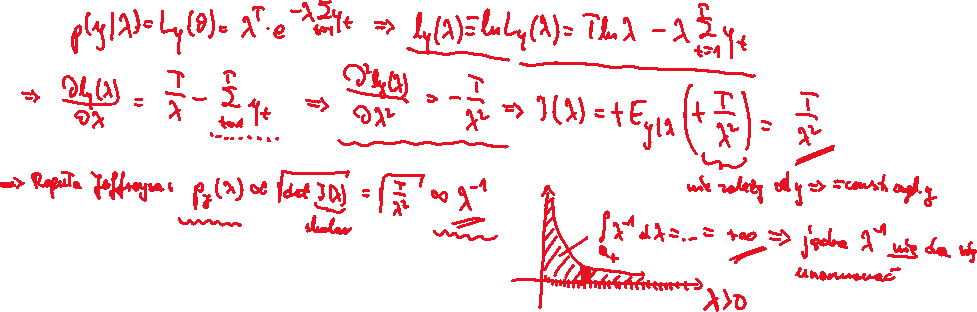 p(y|λ) = L_y(θ) = λ^T · e^{-λ Σ_{t=1}^T y_t} ⇒ l_y(λ) ≡ ln L_y(λ) = T ln λ − λ Σ_{t=1}^T y_t
⇒ ∂l_y(λ)/∂λ = T/λ − Σ_{t=1}^T y_t ⇒ ∂²l_y(λ)/∂λ² = − T/λ² ⇒ J(λ) = + E_{y|λ} (+ T/λ²) = T/λ²
nie zależy od y ⇒ = const wzgl y
⇒ Reguła Jeffreysa: p_J(λ) ∝ √(det J(λ)) = √(T/λ²) ∝ λ^{-1}
skalar
∫_{R_+} λ^{-1} dλ = ... = +∞ ⇒ jądra λ^{-1} nie da się
unormować
λ>0